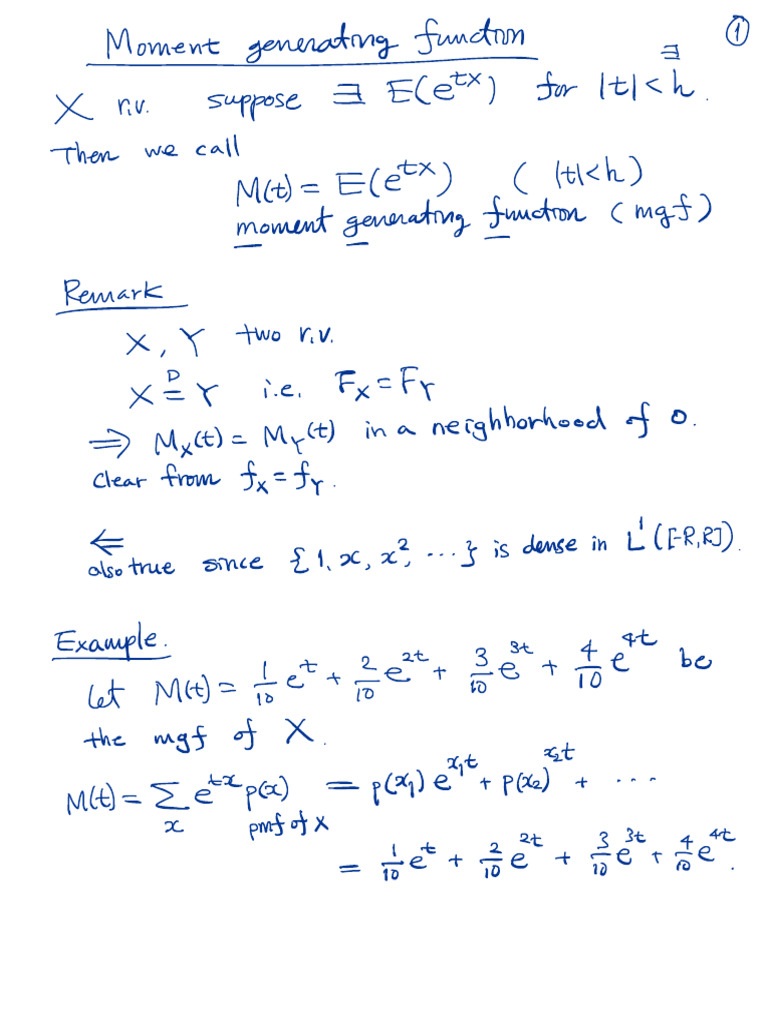 Moment generating function ①
X r.v. suppose ∃ E(e^{tX}) for |t| < ∃h.
Then we call
M(t) = E(e^{tX}) ( |t|<h )
moment generating function (mgf)
Remark
X, Y two r.v.
X =^D Y i.e. F_X = F_Y
⇒ M_X(t) = M_Y(t) in a neighborhood of 0.
clear from f_X = f_Y.
⇐
also true since {1, x, x², ...} is dense in L¹([-R,R]).
Example.
Let M(t) = 1/10 e^t + 2/10 e^{2t} + 3/10 e^{3t} + 4/10 e^{4t} be
the mgf of X.
M(t) = Σ_x e^{tx} p(x) = p(x_1) e^{x_1 t} + p(x_2)^{x_2 t} + ...
pmf of X
= 1/10 e^t + 2/10 e^{2t} + 3/10 e^{3t} + 4/10 e^{4t}.